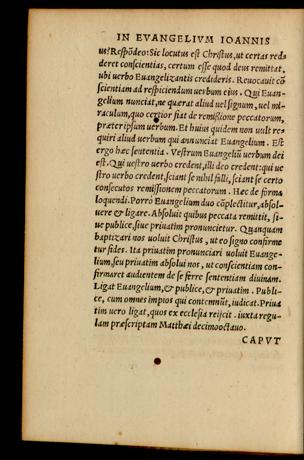 IN EVANGELIVM IOANNIS
us? Respõdeo: Sic locutus est Christus, ut certas red
deret conscientias, certum esse quod deus remittat,
ubi uerbo Euangelizantis credideris. Reuocauit cõ
scientiam ad respiciendum uerbum eius. Qui Euan-
gelium nunciat, ne quærat aliud uel signum, uel mi-
raculum, quo certior fiat de remißione peccatorum,
præter ipsum uerbum. Et huius quidem non uult re-
quiri aliud uerbum qui annunciat Euangelium. Est
ergo hæc sententia. Vestrum Euangelij uerbum dei
est. Qui uestro uerbo credent, illi deo credent: qui ue
stro uerbo credent, sciant se nihil falli, sciant se certo
consecutos remissionem peccatorum. Hæc de forma
loquendi. Porrò Euangelium duo cõplectitur, absol-
uere & ligare. Absoluit quibus peccata remittit, si-
ue publice, siue priuatim pronuncietur. Quanquam
baptizari nos uoluit Christus, ut eo signo confirme
tur fides. Ita priuatim pronunciari uoluit Euange-
lium, seu priuatim absolui nos, ut conscientiam con-
firmaret audientem de se ferre sententiam diuinam.
Ligat Euangelium, & publice, & priuatim. Publi-
ce, cum omnes impios qui contemnũt, iudicat. Priua
tim uero ligat, quos ex ecclesia reijcit. iuxta regu-
lam præscriptam Matthæi decimooctauo.
CAPVT